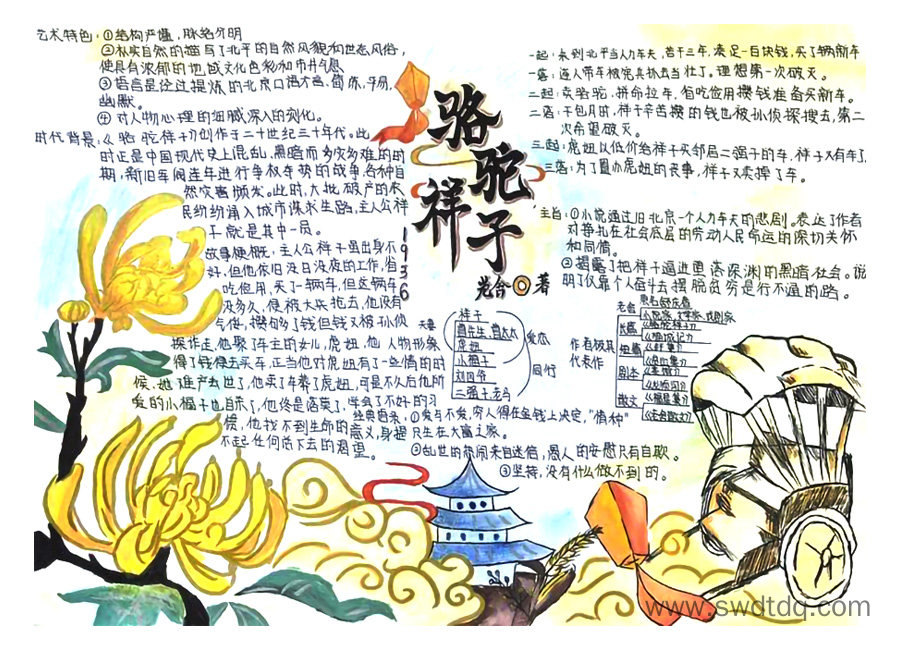 艺术特色：①结构严谨，脉络分明
②朴实自然的描写了北平的自然风貌和世态风俗，
使具有浓郁的地域文化色彩和市井气息
③语言是经过提炼的北京口语
幽默。
④对人物心理的细腻深入的刻化。
时代背景：《骆驼祥子》创作于二十世纪三十年代。此
时正是中国现代史上混乱，黑暗而多灾多难的时
期，新旧军阀连年进行争权夺势的战争，各种自
然灾害频发。此时，大批破产的农
民纷纷涌入城市谋求生路，主人公祥
子就是其中一员。
故事梗概：主人公祥子虽出身不
好，但他依旧没日没夜的工作，省
吃俭用，买了一辆车，但这辆车
没多久，便被大兵抢去，他没有
气馁，攒够了钱但钱又被孙侦
探诈走，他娶了车主的女儿，虎妞，他
得了钱得去买车，正当他对虎妞有了一些情的时
候，她难产去世了，他卖了车葬了虎妞，可是不久后他所
爱的小福子也自杀了，他终是落荚了，学会了不好的习
偿，他找不到生命的意义，身提
不起任何活下去的渴望。
骆驼祥子
1936
老舍 著
一起：来到北平当人力车夫，苦干三年，凑足一百块钱，买了辆新车
一落：连人带车被宪兵抓去当壮丁。理想第一次破灭。
二起：卖骆驼，拼命拉车，省吃俭用攒钱准备买新车。
二落：不包月时，祥子辛苦攒的钱也被孙侦探搜去，第二
次希望破灭。
三起：虎妞以低价给祥子买邻居二强子的车，祥子又有车了，
三落：为了置办虎妞的丧事，祥子又卖掉了车。
主旨：①小说通过旧北京一个人力车夫的悲剧。表达了作者
对挣扎在社会底层的劳动人民命运的深切关怀
和同情。
②揭露了把祥子逼进重落深渊的黑暗社会。说
明了仅靠个人奋斗去摆脱贫穷是行不通的路。
人物形象
祥子
曹先生 曹太太
虎妞
小福子
刘四爷
二强子 老马
夫妻
爱恋
同行
作者极其
代表作
老舍
原名舒庆春
小说家 文学家 戏剧家
长篇
《骆驼祥子》
短篇
剧本
《茶馆》
《龙须沟》
散文
经典语录：①爱与不爱，穷人得在金钱上决定，“情种”
只生在大富之家。
②乱世的热闹来自迷信，愚人的安慰只有自欺。
③坚持，没有什么做不到的。
www.swdtdq.com